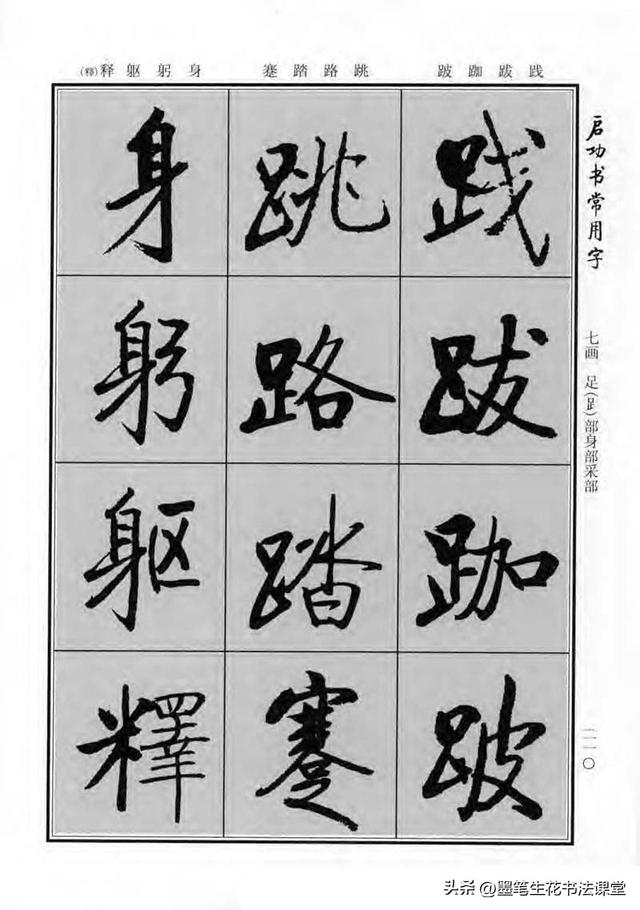 践跋跏跛
跳路踏蹇
身躬躯释(釋)
启功书常用字
七画 足(⻊)部身部釆部
践跋跏跛
跳路踏蹇
身躬躯釋
头条 @墨笔生花书法课堂